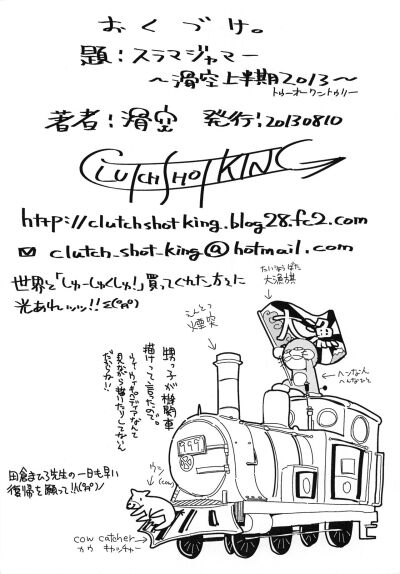 おくづけ。
題:スラマジャマー
～滑空上半期2013～
トゥーオーワントゥリー
著者:滑空 発行:20130810
CLUTCH SHOT KING
http://clutchshotking.blog28.fc2.com
clutch_shot_king@hotmail.com
世界と「しゅーしゅくしゅ!」買ってくれた方々に
光あれッッ!!
たいりょうばた
大漁旗
大
えんとつ
煙突
ヘンな人
へんなひと
甥っ子が機関車
描けって言ったので。
ウィキペディアなんて
見ながら描いたりしてない
だからね!!
999
ウシ
(cow)
田倉まひろ先生の一日も早い
復帰を願って!!
cow catcher
カウ キャッチャー